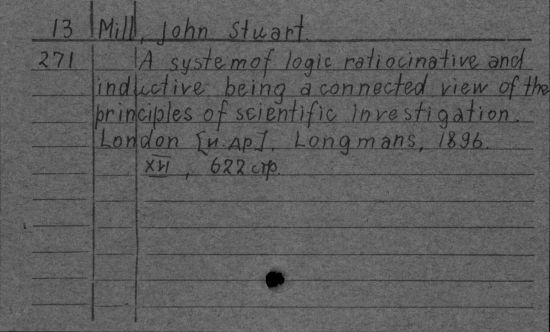 13 Mill, John Stuart.
271 A system of logic ratiocinative and
inductive being a connected view of the
principles of scientific investigation.
London [и др]. Longmans, 1896.
XVI, 622 стр.